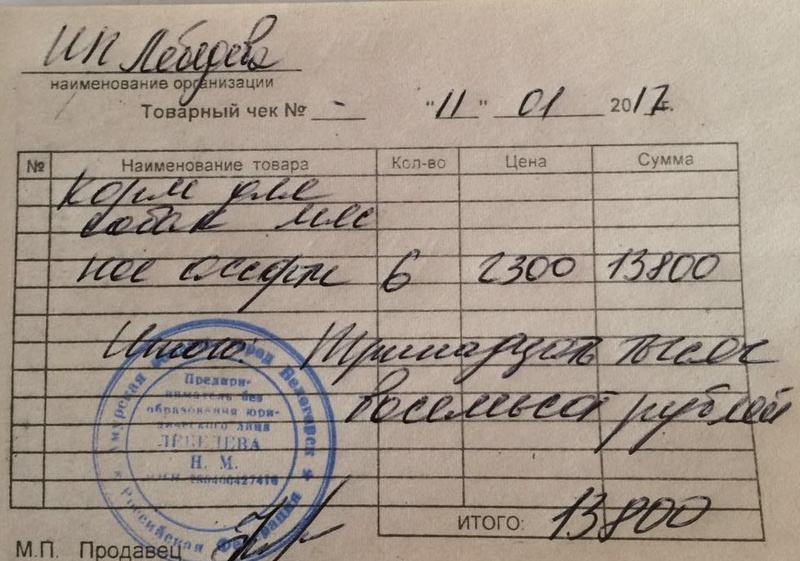 ИП Лебедева
наименование организации
Товарный чек № - "11" 01 2017г.
№ Наименование товара Кол-во Цена Сумма
Корм для
собак мяс
ное ассорти 6 2300 13800
Итого: Тринадцать тысяч
восемьсот рублей
Амурская город Белогорск
Предпри-
ниматель без
образования юри-
дического лица
ЛЕБЕДЕВА
Н. М.
Российская Федерация
ИТОГО: 13800
М.П. Продавец